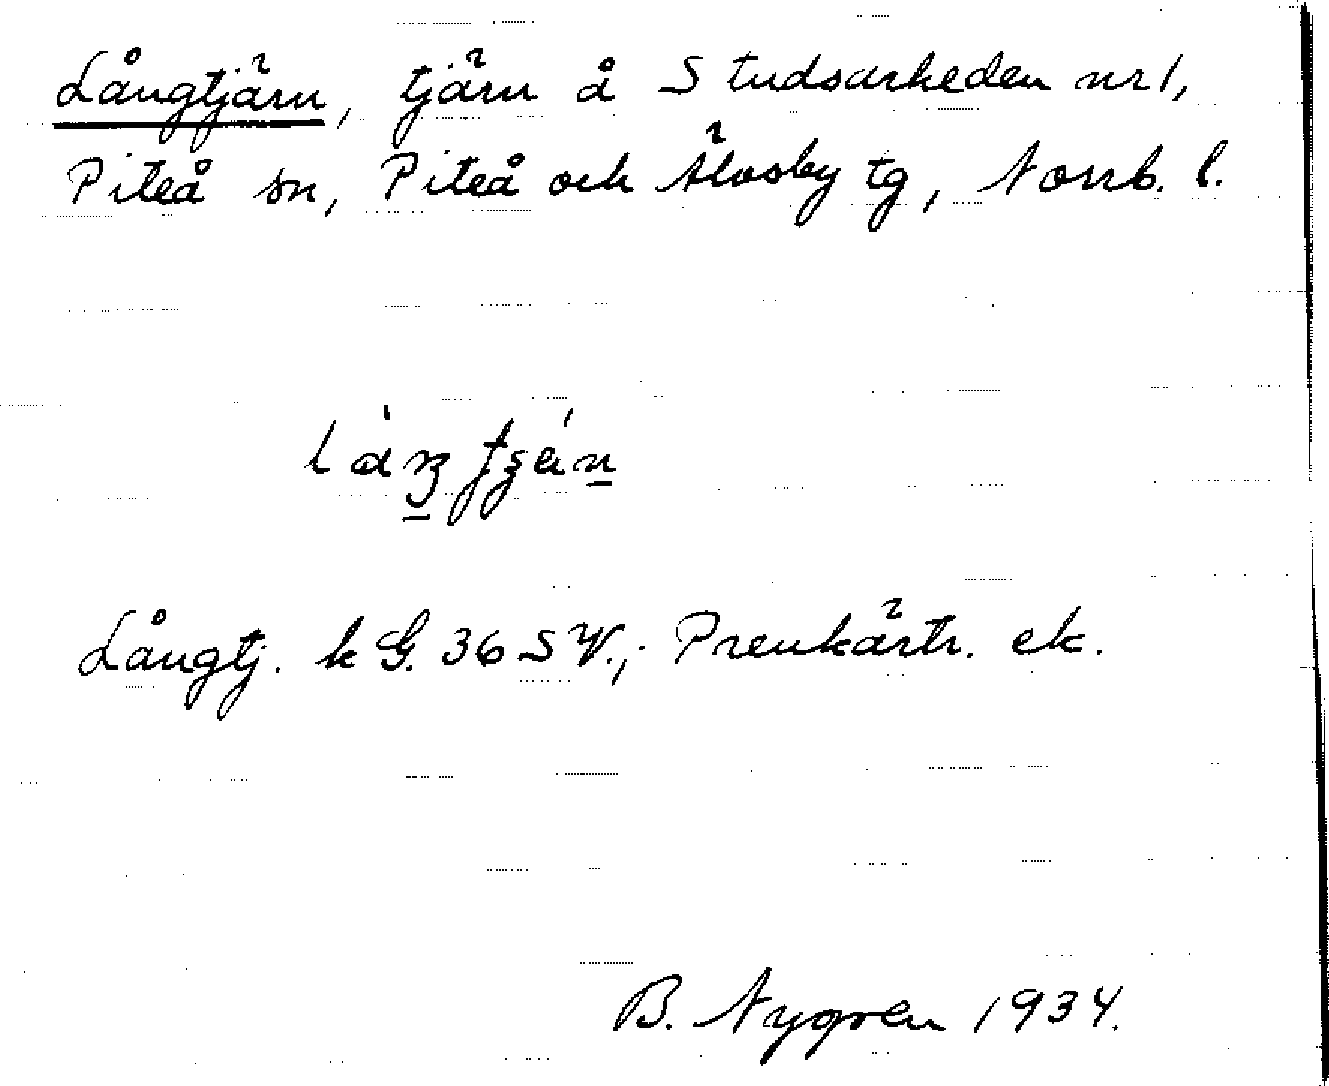 Långtjärn, tjärn å Studsarheden nr 1,
Piteå sn, Piteå och Älvsby tg, Norrb. l.
Långtj. k G. 36 SV.; Prenkärtr. ek.
B. Nygren 1934.